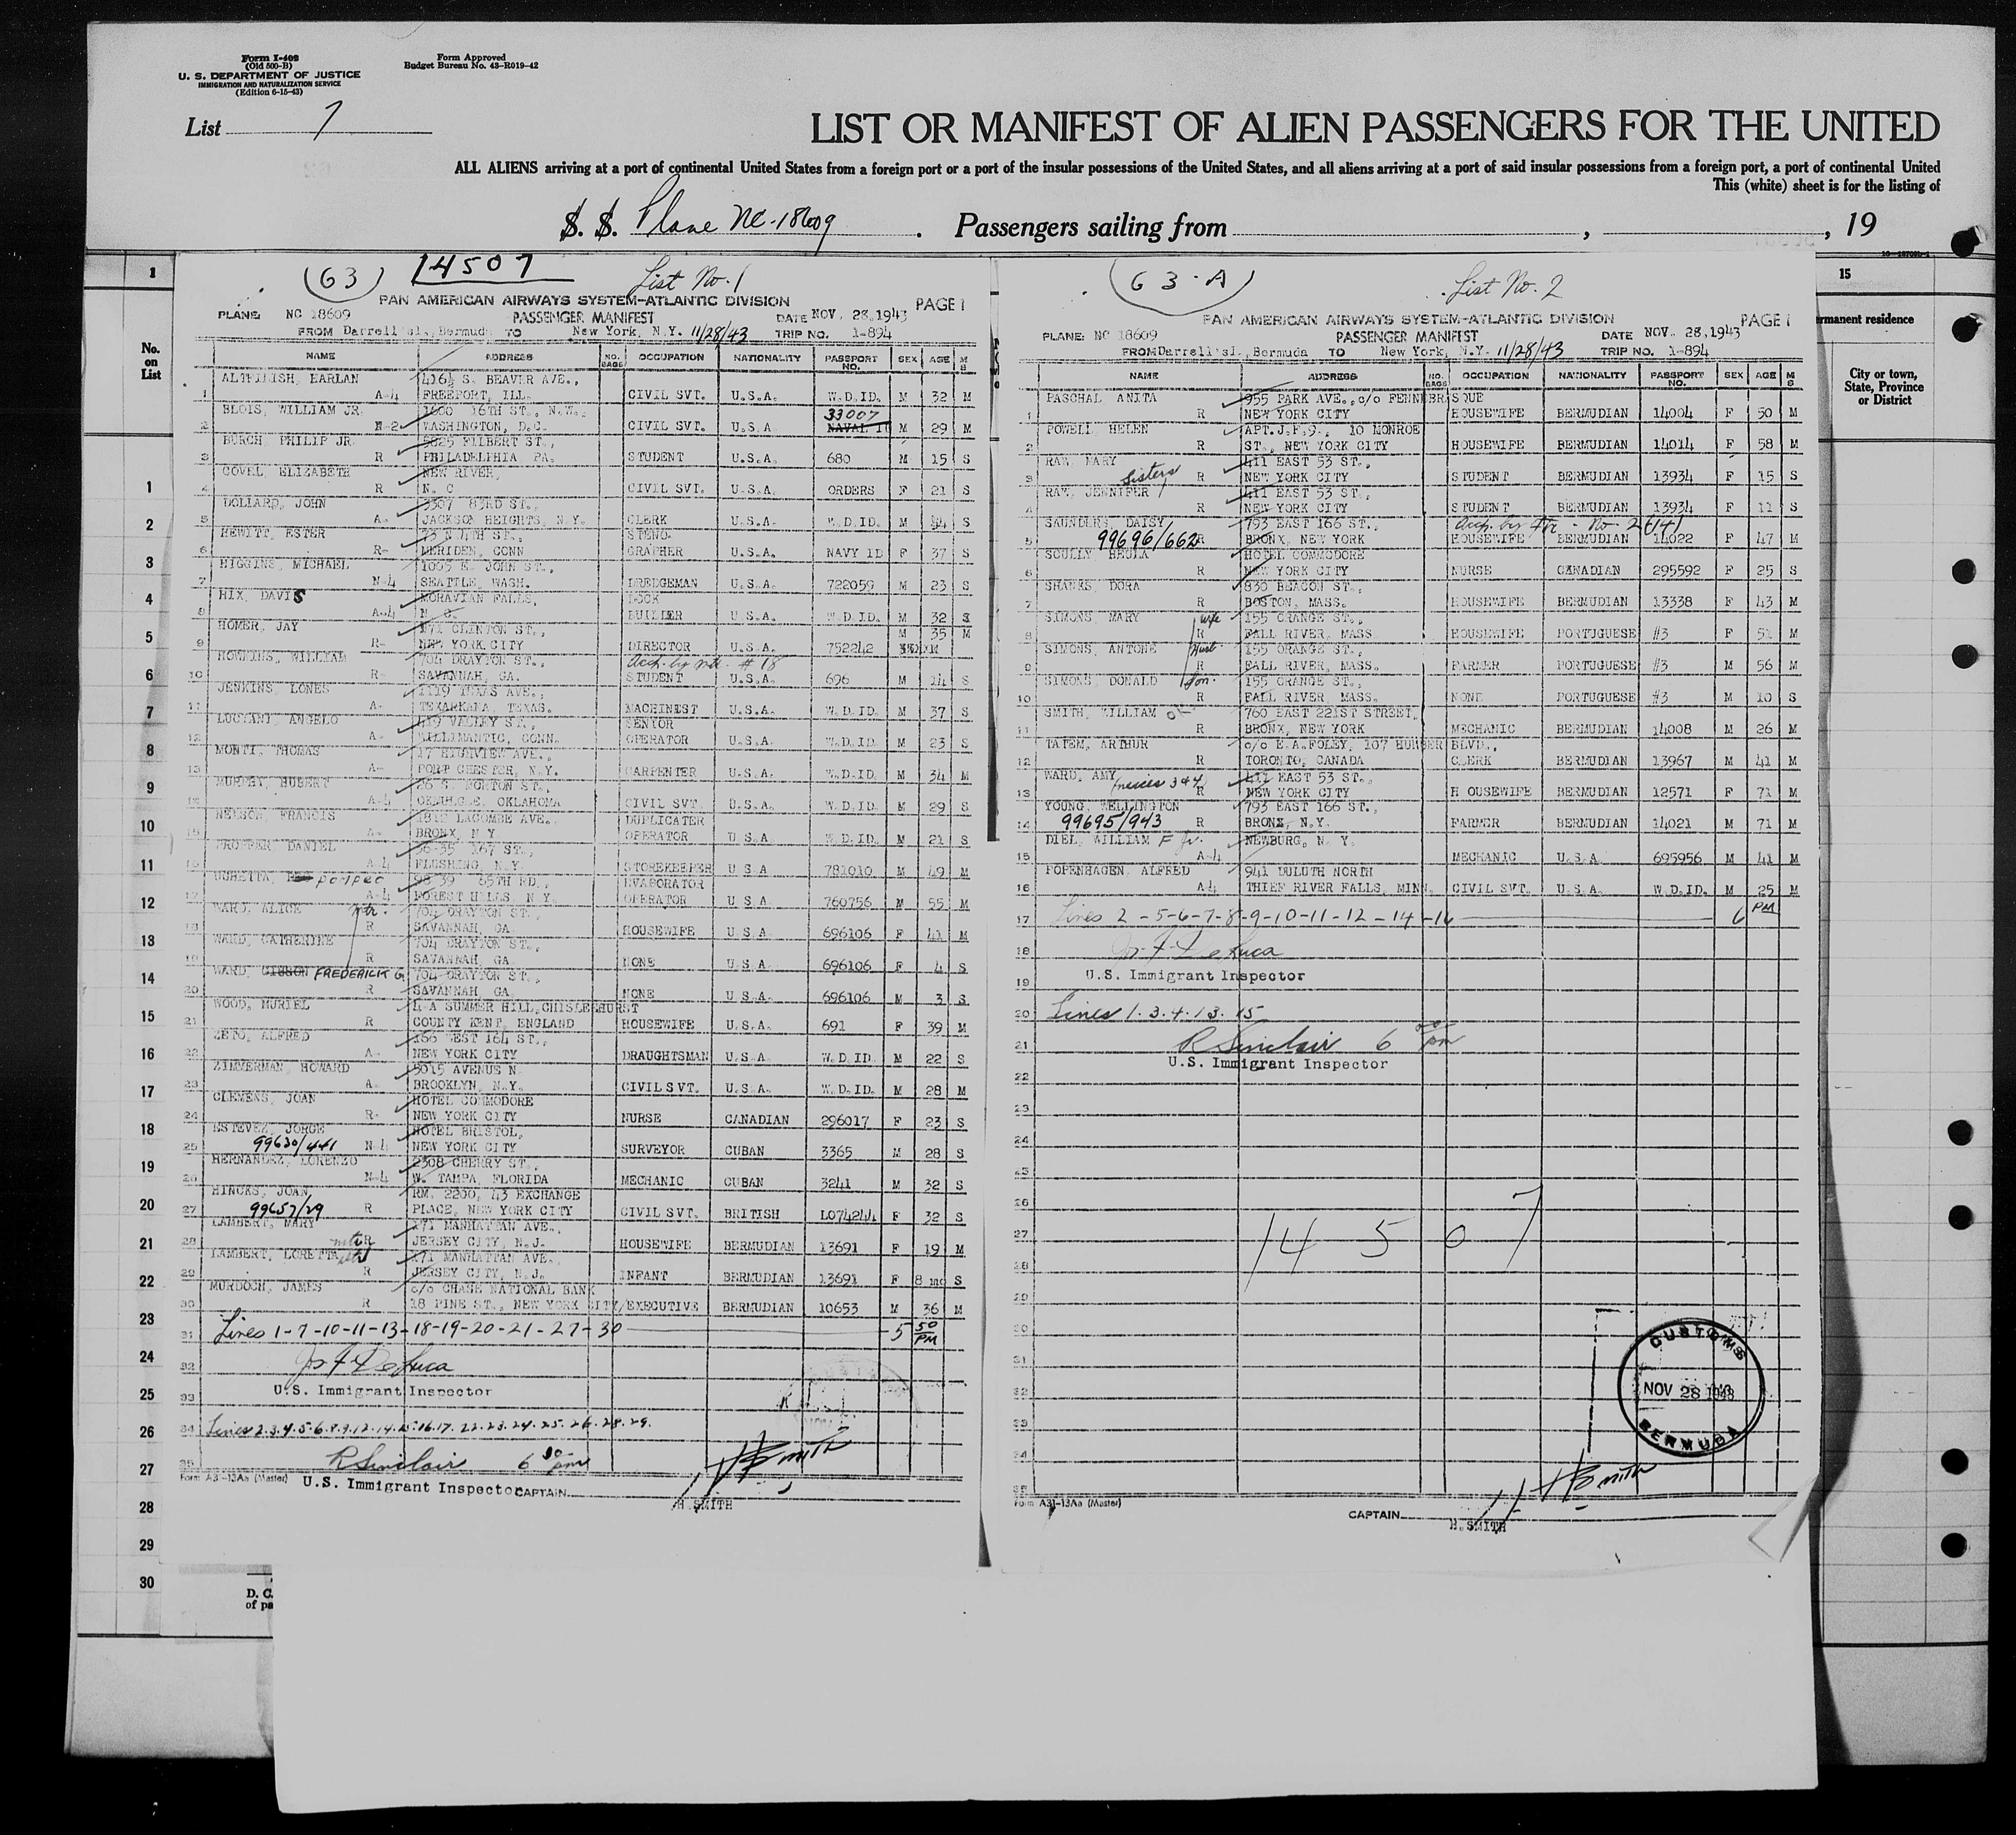 Form I-409
(Old 500-B)
U. S. DEPARTMENT OF JUSTICE
IMMIGRATION AND NATURALIZATION SERVICE
(Edition 6-15-43)
Form Approved
Budget Bureau No. 43-R019-42
List 7
LIST OR MANIFEST OF ALIEN PASSENGERS FOR THE UNITED
ALL ALIENS arriving at a port of continental United States from a foreign port or a port of the insular possessions of the United States, and all aliens arriving at a port of said insular possessions from a foreign port, a port of continental United
This (white) sheet is for the listing of
S. S. Plane NC-18609 . Passengers sailing from , , 19
1
No.
on
List
(63) 14507 List No. 1
PAN AMERICAN AIRWAYS SYSTEM-ATLANTIC DIVISION PAGE 1
PLANE: NC 18609 PASSENGER MANIFEST DATE NOV. 28, 1943
FROM Darrell's I., Bermuda TO New York, N.Y. 11/28/43 TRIP NO. 1-894
NAME ADDRESS NO. BAGS OCCUPATION NATIONALITY PASSPORT NO. SEX AGE M S
HARLAN 416½ S. BEAVER AVE.,
1 A-4 FREEPORT, ILL. CIVIL SVT. U.S.A. W.D.ID. M 32 M
BLOIS, WILLIAM JR. 1600 16TH ST., N.W., 33007
2 N-2 WASHINGTON, D.C. CIVIL SVT. U.S.A NAVAL ID M 29 M
BURCH, PHILIP JR. 5825 FILBERT ST.,
3 R PHILADELPHIA, PA. STUDENT U.S.A. 680 M 15 S
COVEL, ELIZABETH NEW RIVER,
4 R N. C CIVIL SVT. U.S.A. ORDERS F 21 S
DOLLARD, JOHN 3307 83RD ST.,
5 A- JACKSON HEIGHTS, N.Y. CLERK U.S.A. W.D.ID. M 44 S
HEWITT, ESTER 73 N 4TH ST., STENO-
6 R- MERIDEN, CONN GRAPHER U.S.A. NAVY ID F 37 S
HIGGINS, MICHAEL 1005 E. JOHN ST.,
7 N-4 SEATTLE, WASH. DREDGEMAN U.S.A. 722059 M 23 S
HIX, DAVIS MORAVIAN FALLS, DOCK
8 A-4 N. C. BUILDER U.S.A. W.D.ID. M 32 S
HOMER, JAY 171 CLINTON ST., M 35 M
9 R- NEW YORK CITY DIRECTOR U.S.A. 752242
HOWKINS, WILLIAM 704 DRAYTON ST., Acc. by mtr. # 18
10 R- SAVANNAH, GA. STUDENT U.S.A. 696 M 14 S
JENKINS, LONES 1119 TEXAS AVE.,
11 A- TEXARKANA, TEXAS. MACHINEST U.S.A. W.D.ID. M 37 S
LUCIANI, ANGELO 419 VALLEY ST., SENIOR
12 A- WILLIMANTIC, CONN. OPERATOR U.S.A. W.D.ID. M 23 S
MONTI, THOMAS 17 HIGHVIEW AVE.,
13 A- PORT CHESTER, N.Y. CARPENTER U.S.A. W.D.ID. M 34 M
MURPHY, HUBERT 26 S. NORTON ST.,
14 A-4 OKMULGEE, OKLAHOMA CIVIL SVT. U.S.A. W.D.ID. M 29 S
NELSON, FRANCIS 1812 LACOMBE AVE., DUPLICATER
15 A- BRONX, N Y OPERATOR U S.A. W.D.ID. M 21 S
PROPPER, DANIEL 167 ST.,
16 A-4 FLUSHING, N.Y. STOREKEEPER U S A 781010 M 49 M
POMPEO 98 39 65TH RD., EVAPORATOR
17 A-4 FOREST HILLS, N Y. OPERATOR U S A 760756 M 55 M
WARD, ALICE mtr. 704 DRAYTON ST.,
18 R SAVANNAH, GA. HOUSEWIFE U S.A 696106 F 41 M
WARD, CATHERINE 704 DRAYTON ST.,
19 R SAVANNAH, GA. NONE U S.A. 696106 F 4 S
WARD, GIBSON FREDERICK G. 704 DRAYTON ST.,
20 R SAVANNAH, GA. NONE U S.A. 696106 M 3 S
WOOD, MURIEL 4-A SUMMER HILL, CHISLEHURST
21 R COUNTY KENT, ENGLAND HOUSEWIFE U.S.A. 691 F 39 M
ZETO, ALFRED 166 WEST 164 ST.,
22 A- NEW YORK CITY DRAUGHTSMAN U.S.A. W.D.ID. M 22 S
ZIMMERMAN, HOWARD 5015 AVENUE N.
23 A- BROOKLYN, N.Y. CIVIL SVT. U.S.A. W.D.ID. M 28 M
CLEMENS, JOAN HOTEL COMMODORE
24 R- NEW YORK CITY NURSE CANADIAN 296017 F 23 S
ESTEVEZ, JORGE HOTEL BRISTOL,
25 99630/441 N-4 NEW YORK CITY SURVEYOR CUBAN 3365 M 28 S
HERNANDEZ, LORENZO 2308 CHERRY ST.,
26 N-4 W. TAMPA, FLORIDA MECHANIC CUBAN 3241 M 32 S
HINCKS, JOAN RM. 2200, 43 EXCHANGE
27 99657/29 R PLACE, NEW YORK CITY CIVIL SVT. BRITISH L074244 F 32 S
LAMBERT, MARY 171 MANHATTAN AVE.,
28 mtr R JERSEY CITY, N.J. HOUSEWIFE BERMUDIAN 13691 F 19 M
LAMBERT, LORETTA 171 MANHATTAN AVE.,
29 R JERSEY CITY, N.J. INFANT BERMUDIAN 13691 F 8 mo S
MURDOCH, JAMES c/o CHASE NATIONAL BANK
30 R 18 PINE ST., NEW YORK CITY/EXECUTIVE BERMUDIAN 10653 M 36 M
31 Lines 1-7-10-11-13-18-19-20-21-27-30 5 50 PM
32 Jos F De Luca
33 U.S. Immigrant Inspector
34 Lines 2.3.4.5.6.8.9.12.14.15.16.17.22.23.24.25.26.28.29.
35 R Sinclair 6 30 pm
Form A31-13Aa (Master) U.S. Immigrant Inspector CAPTAIN H Smith
H. SMITH
(63-A) List No. 2
PAN AMERICAN AIRWAYS SYSTEM-ATLANTIC DIVISION PAGE 1
PLANE: NC 18609 PASSENGER MANIFEST DATE NOV. 28, 1943
FROM Darrell's I., Bermuda TO New York, N.Y. 11/28/43 TRIP NO. 1-894
NAME ADDRESS NO. BAGS OCCUPATION NATIONALITY PASSPORT NO. SEX AGE M S
PASCHAL ANITA 955 PARK AVE., c/o FENNEBRESQUE
1 R NEW YORK CITY HOUSEWIFE BERMUDIAN 14004 F 50 M
POWELL, HELEN APT. J.F.9., 10 MONROE
2 R ST., NEW YORK CITY HOUSEWIFE BERMUDIAN 14014 F 58 M
RAW, MARY 411 EAST 53 ST.,
3 Sisters R NEW YORK CITY STUDENT BERMUDIAN 13934 F 15 S
RAW, JENNIFER 411 EAST 53 ST.,
4 R NEW YORK CITY STUDENT BERMUDIAN 13934 F 11 S
SAUNDERS, DAISY 793 EAST 166 ST., Acc. by Fr. - No. 2 (14)
5 99696/662 R BRONX, NEW YORK HOUSEWIFE BERMUDIAN 14022 F 47 M
SCULLY BEULA HOTEL COMMODORE
6 R NEW YORK CITY NURSE CANADIAN 295592 F 25 S
SHANKS, DORA 830 BEACON ST.,
7 R BOSTON, MASS. HOUSEWIFE BERMUDIAN 13338 F 43 M
SIMONS, MARY wife 155 ORANGE ST.,
8 R FALL RIVER, MASS HOUSEWIFE PORTUGUESE #3 F 51 M
SIMONS, ANTONE Husb. 155 ORANGE ST.,
9 R FALL RIVER, MASS. FARMER PORTUGUESE #3 M 56 M
SIMONS, DONALD Son. 155 ORANGE ST.,
10 R FALL RIVER, MASS. NONE PORTUGUESE #3 M 10 S
SMITH, WILLIAM OK 760 EAST 221ST STREET,
11 R BRONX, NEW YORK MECHANIC BERMUDIAN 14008 M 26 M
TATEM, ARTHUR c/o E.A.FOLEY, 107 HUMBER BLVD.,
12 R TORONTO, CANADA CLERK BERMUDIAN 13967 M 41 M
WARD, AMY (nieces 3 & 4) 411 EAST 53 ST.,
13 R NEW YORK CITY H OUSEWIFE BERMUDIAN 12571 F 71 M
YOUNG, WELLINGTON 793 EAST 166 ST.,
14 99695/943 R BRONX, N.Y. FARMER BERMUDIAN 14021 M 71 M
DIEL, WILLIAM F Jr. NEWBURG, N. Y.
15 A-4 MECHANIC U.S.A. 695956 M 41 M
POPENHAGEN, ALFRED 941 DULUTH NORTH
16 A4 THIEF RIVER FALLS, MINN. CIVIL SVT. U.S.A. W.D.ID. M 25 M
17 Lines 2-5-6-7-8-9-10-11-12-14-16 6 PM
18 Jos. F. De Luca
U.S. Immigrant Inspector
19
20 Lines 1.3.4.13.15
21 R Sinclair 6 pm
U.S. Immigrant Inspector
22
23
24
25
26
27 14507
28
29
30
31
32
33
34
35
CUSTOMS
NOV 28 1943
BERMUDA
H Smith
Form A31-13Aa (Master)
CAPTAIN
H. SMITH
15
rmanent residence
City or town,
State, Province
or District
1
2
3
4
5
6
7
8
9
10
11
12
13
14
15
16
17
18
19
20
21
22
23
24
25
26
27
28
29
30
D. C.
of pa